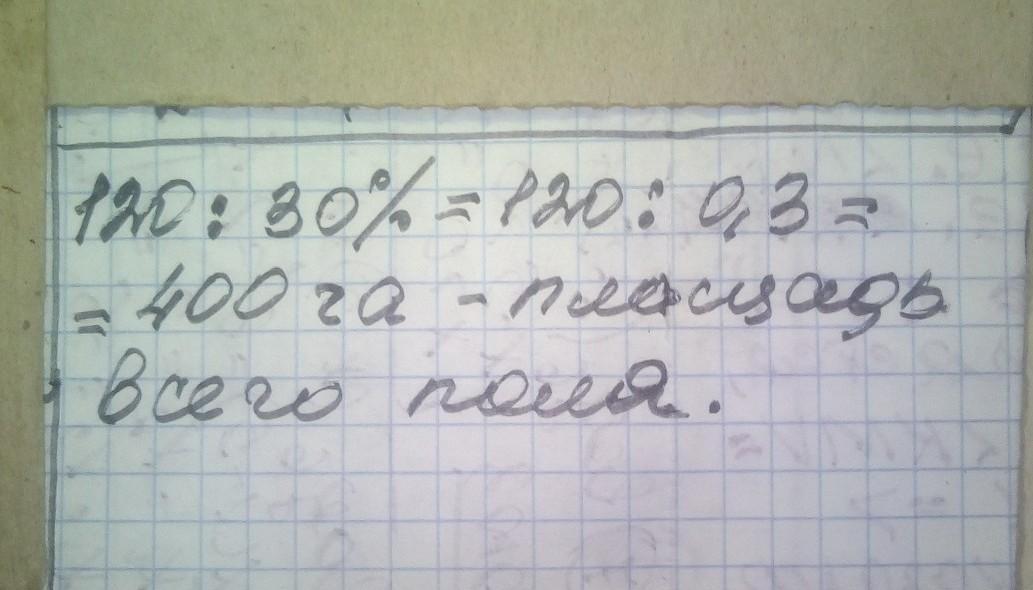 120 : 30% = 120 : 0,3 =
= 400 га - площадь
всего поля.